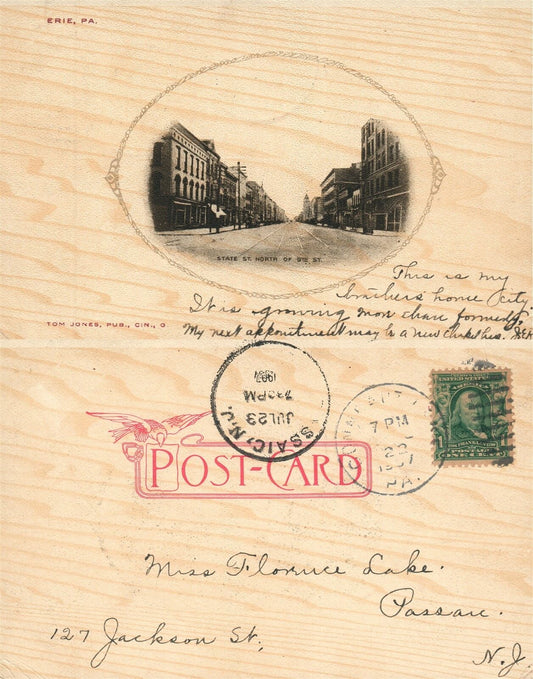 ERIE, PA.
STATE ST. NORTH OF 9TH ST.
This is my
brothers' home city.
It is growing more than formerly.
My next appointment may be a new
TOM JONES, PUB., CIN., O
PASSAIC, N.J.
JUL 23
7 30 PM
1907
7 PM
1907
PA.
UNITED STATES
AMERICA
FRANKLIN
POSTAGE
ONE CENT
POST-CARD
Miss Florence Lake.
Passaic.
127 Jackson St,
N.J.